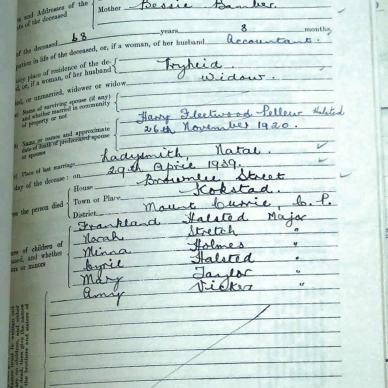 Names and Addresses of the
Mother Bessie Bamber.
of the deceased 68 years 8 months
pation in life of the deceased, or, if a woman, of her husband Accountant.
ary place of residence of the de-
d, or, if a woman, of her husband
ried, or unmarried, widower or widow Widow.
Name of surviving spouse (if any)
and whether married in community
of property or not
Name or names and approximate
date of death of predeceased spouse
or spouses
Harry Fleetwood Pellew Halsted
26th November 1920.
Place of last marriage Ladysmith, Natal.
day of the decease: on 29th April 1939.
House Brownlee Street
the person died Town or Place Kokstad.
District Mount Currie, C.P.
Frankland Halsted Major
Norah Stretch "
Minna Holmes "
Cyril Halsted "
Mary Taylor "
Amy Vicker "